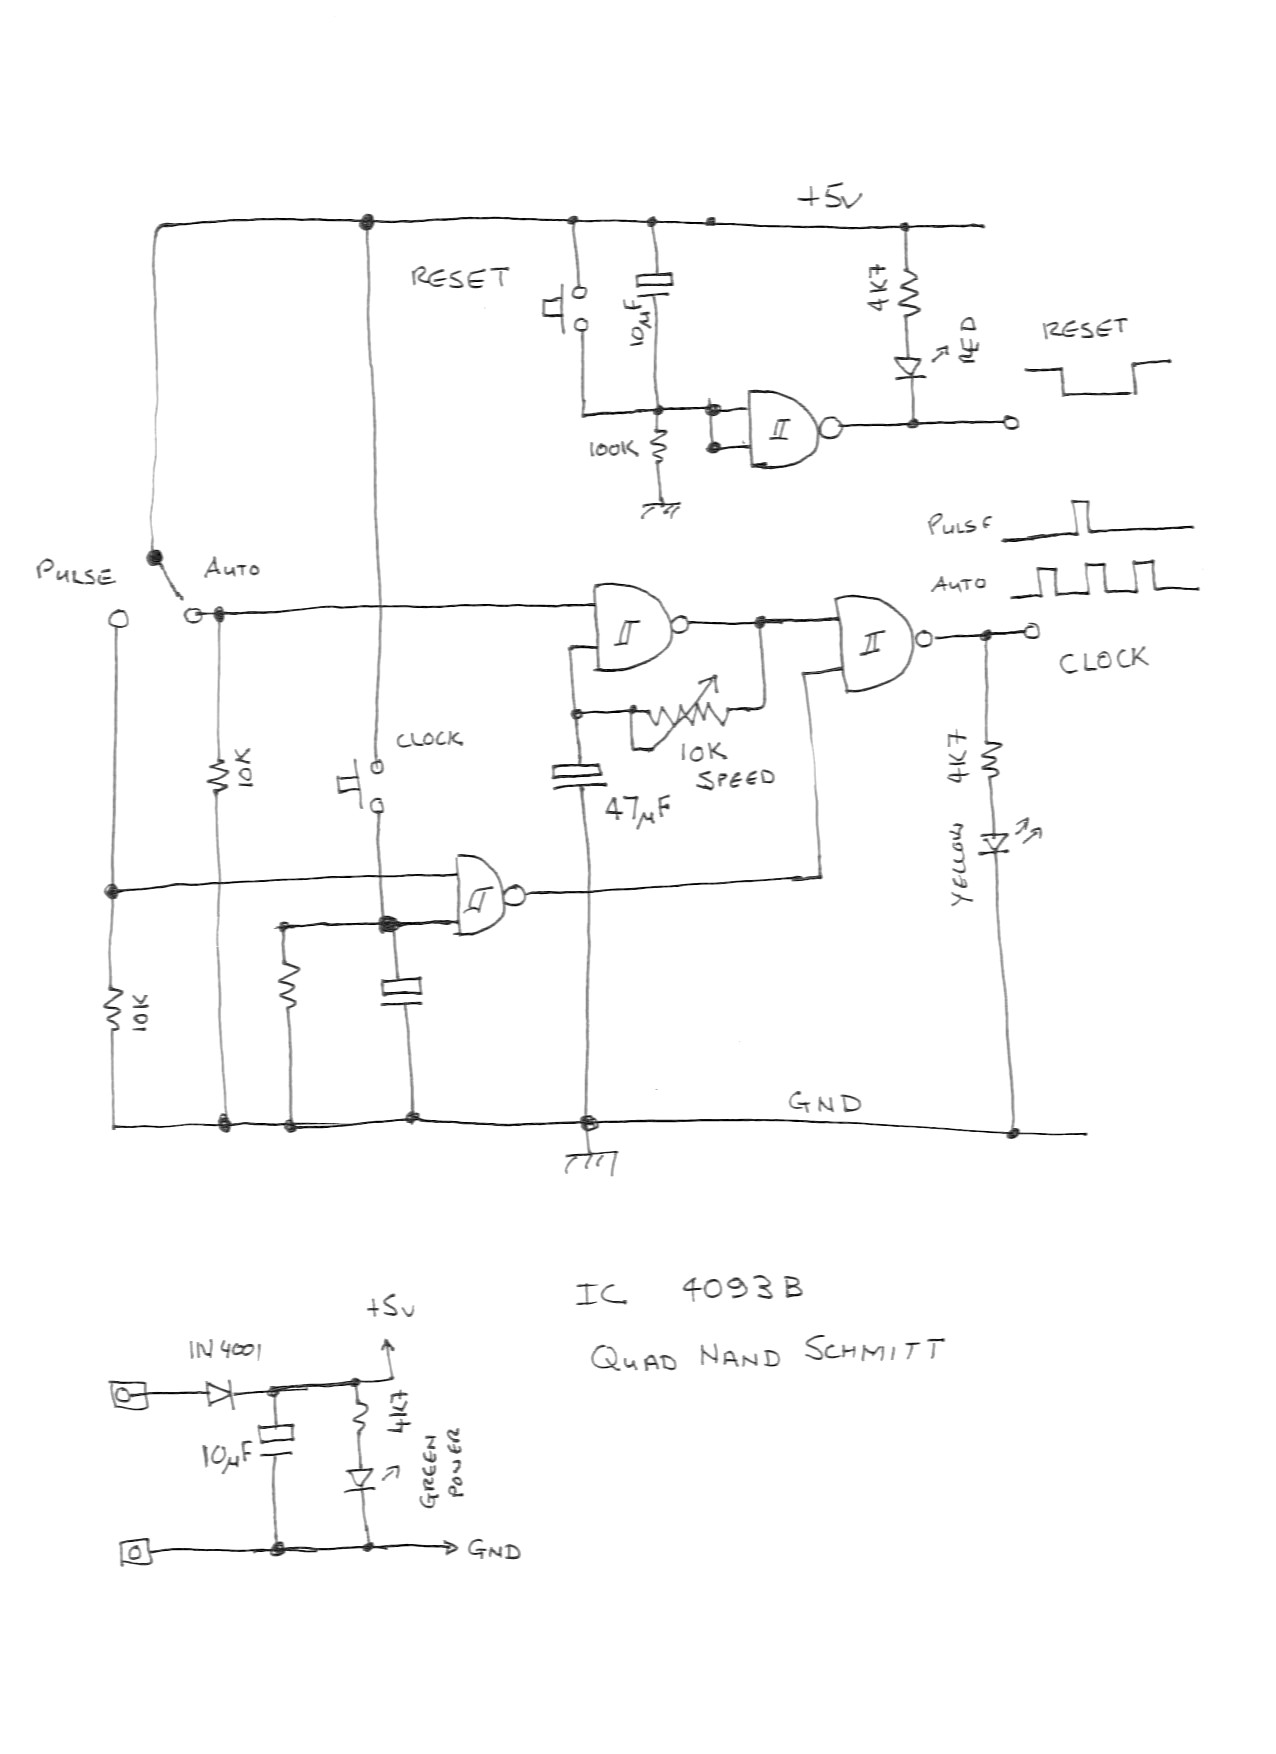 +5v
RESET
10µF
4K7
RED
RESET
100K
PULSE
AUTO
PULSE
AUTO
CLOCK
10K
CLOCK
10K
SPEED
47µF
4K7
YELLOW
10K
GND
IC 4093B
QUAD NAND SCHMITT
+5v
1N4001
4K7
10µF
GREEN
POWER
GND